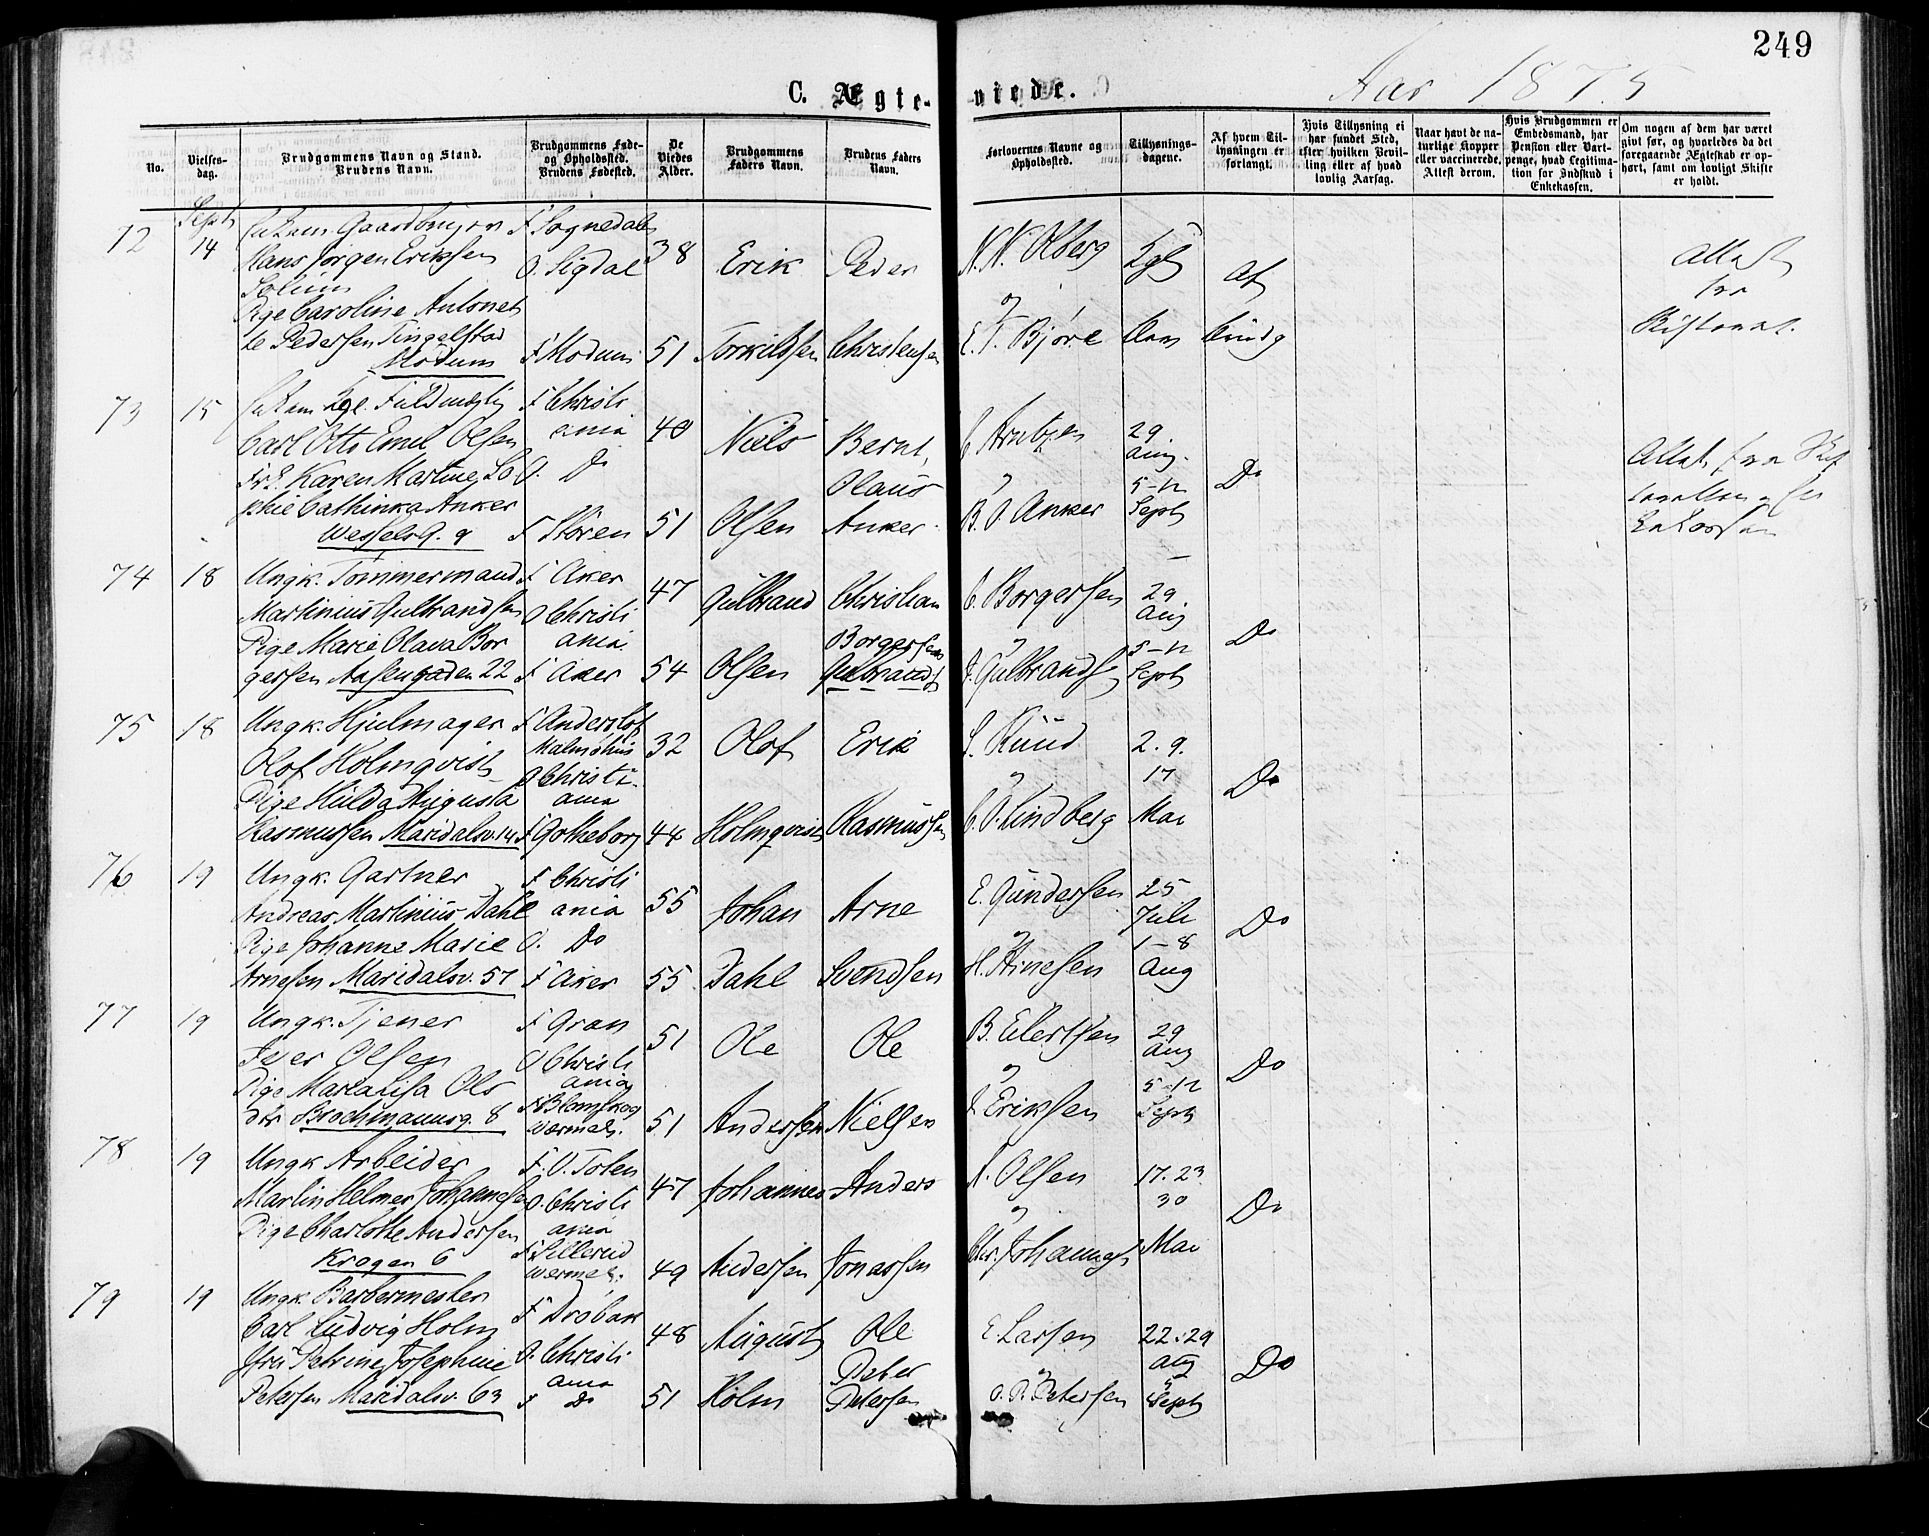 249
C. Ægte-
viede.
Aar 1875
No.
Vielses-
dag.
Brudgommens Navn og Stand.
Brudens Navn.
Brudgommens Føde-
og Opholdssted.
Brudens Fødested.
De
Viedes
Alder.
Brudgommens
Faders Navn.
Brudens Faders
Navn.
Forlovernes Navne og
Opholdssted.
Tillysnings-
dagene.
Af hvem Til-
lysningen er
forlangt.
Hvis Tillysning ei
har fundet Sted,
efter hvilken Bevil-
ling eller af hvad
lovlig Aarsag.
Naar havt de na-
turlige Kopper
eller vaccinerede.
Attest derom.
Hvis Brudgommen er
Embedsmand, har
Pension eller Vart-
penge, hvad Legitima-
tion for Indskud i
Enkekassen.
Om nogen af dem har været
givt før, og hvorledes da det
foregaaende Ægteskab er op-
hørt, samt om lovligt Skifte
er holdt.
72
Sept
14
Gaardbruger
Hans Jørgen Eriksen
Solum
Pige Caroline Antonet
te Pedersen Tingelstad
Modum
F Sognedalen
O. Sigdal
F Modum
38
51
Erik
Torkildsen
Peder
Christensen
N. N. Olberg
og
E. T. Bjøre
Af
Attest
fra
Skifteret.
73
15
Fuldmægtig
Carl Otto Emil Olsen
Frk. Karen Martine So
phie Cathinka Anker
Wessels G. 9
F Christi
ania
O. Do
F Støren
40
51
Niels
Olsen
Bernt
Olaus
Anker
C. Arntzen
og
B. O. Anker
29
Aug.
5-12
Sept
Do
Attest fra Skif
74
18
Ungk. Tømmermand
Martinius Gulbrandsen
Pige Marie Olava Bor
gersen Aasengaden 22
F Aker
O Christi
ania
F Aker
47
54
Gulbrand
Olsen
Christian
Borgersen
Gulbrands
C. Borgersen
og
J. Gulbrands
29
Aug
5-12
Sept
Do
75
18
Ungk. Hjulmager
Olof Holmqvist
Pige Hulda Augusta
Rasmussen Maridalsv. 14
F Anderslof
Malmöhus
O Christi
ania
F Gotheborg
32
44
Olof
Holmqvist
Erik
Rasmussen
S. Ruud
og
C. O. Lindberg
2. 9.
17
Mai
Do
76
19
Ungk. Gartner
Andreas Martinius Dahl
Pige Johanne Marie
Arnesen Maridalsv. 57
F Christi
ania
O. Do
F Aker
55
55
Johan
Dahl
Arne
Svendsen
E. Gundersen
og
H. Arnesen
25
Juli
1-8
Aug
Do
77
19
Ungk. Tjener
Iver Olsen
Pige Maria Lisa Ols
dtr Brochmannsg. 8
F Gran
O Christi
ania
F Blomskog
Wermel.
51
51
Ole
Andersen
Ole
Nielsen
B. Eilertsen
og
J. Eriksen
29
Aug
5-12
Sept
Do
78
19
Ungk Arbeider
Martin Helmer Johannesen
Pige Charlotte Andersen
Krogen 6
F. V. Toten
O. Christi
ania
F. Sillerud
Wermel.
47
49
Johannes
Andersen
Anders
Jonassen
A. Olsen
og
Chr. Johannes
17. 23
30
Mai
Do
79
19
Ungk. Barbermester
Carl Ludvig Holm
Jfr. Petrine Josephine
Petersen Maridalsv. 63
F Drøbak
O. Christi
ania
F Do
48
51
August
Holm
Ole
Peter
Petersen
E. Larsen
og
O. P. Petersen
22. 29
Aug
5
Sept
Do